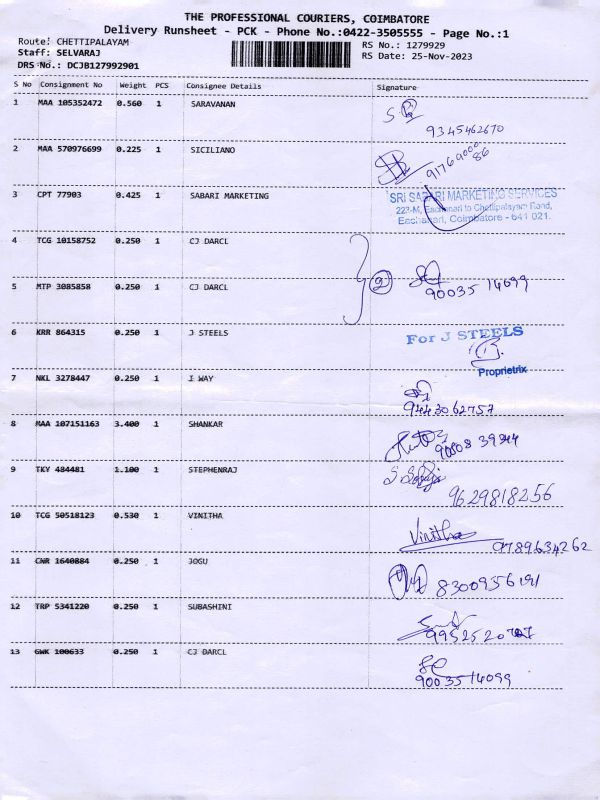 THE PROFESSIONAL COURIERS, COIMBATORE
Delivery Runsheet - PCK - Phone No.:0422-3505555 - Page No.:1
Route: CHETTIPALAYAM
RS No.: 1279929
Staff: SELVARAJ
RS Date: 25-Nov-2023
DRS No.: DCJB127992901
S No Consignment No Weight PCS Consignee Details Signature
1 MAA 105352472 0.560 1 SARAVANAN
9345462670
2 MAA 570976699 0.225 1 SICILIANO
917690000
86
3 CPT 77903 0.425 1 SABARI MARKETING
SRI SABARI MARKETING SERVICES
223-M, Eachanari to Chettipalayam Road,
Eachanari, Coimbatore - 641 021.
4 TCG 10158752 0.250 1 CJ DARCL
5 MTP 3085858 0.250 1 CJ DARCL
2
90035 14099
6 KRR 864315 0.250 1 J STEELS
For J STEELS
Proprietrix
7 NKL 3278447 0.250 1 J WAY
9443062757
8 MAA 107151163 3.400 1 SHANKAR
90808 39944
9 TKY 484481 1.100 1 STEPHENRAJ
9629818256
10 TCG 50518123 0.530 1 VINITHA
Vinitha
9789634262
11 CNR 1640884 0.250 1 JOGU
8300956191
12 TRP 5341220 0.250 1 SUBASHINI
13 GWK 100633 0.250 1 CJ DARCL
90035 14099